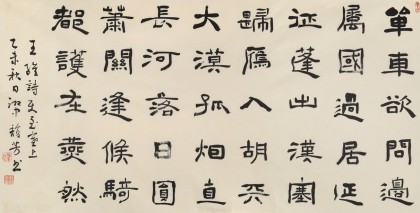 單車欲問邊
屬國過居延
征蓬出漢塞
歸鴈入胡天
大漠孤烟直
長河落日圓
蕭關逢候騎
都護在燕然
王維詩使至塞上
乙未秋日梁書